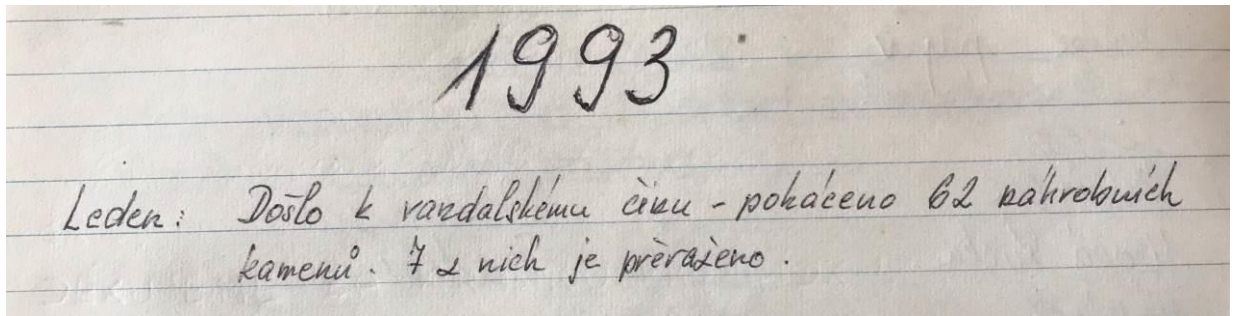 1993
Leden: Došlo k vandalskému činu - pokáceno 62 náhrobních
kamenů. 7 z nich je přeraženo.